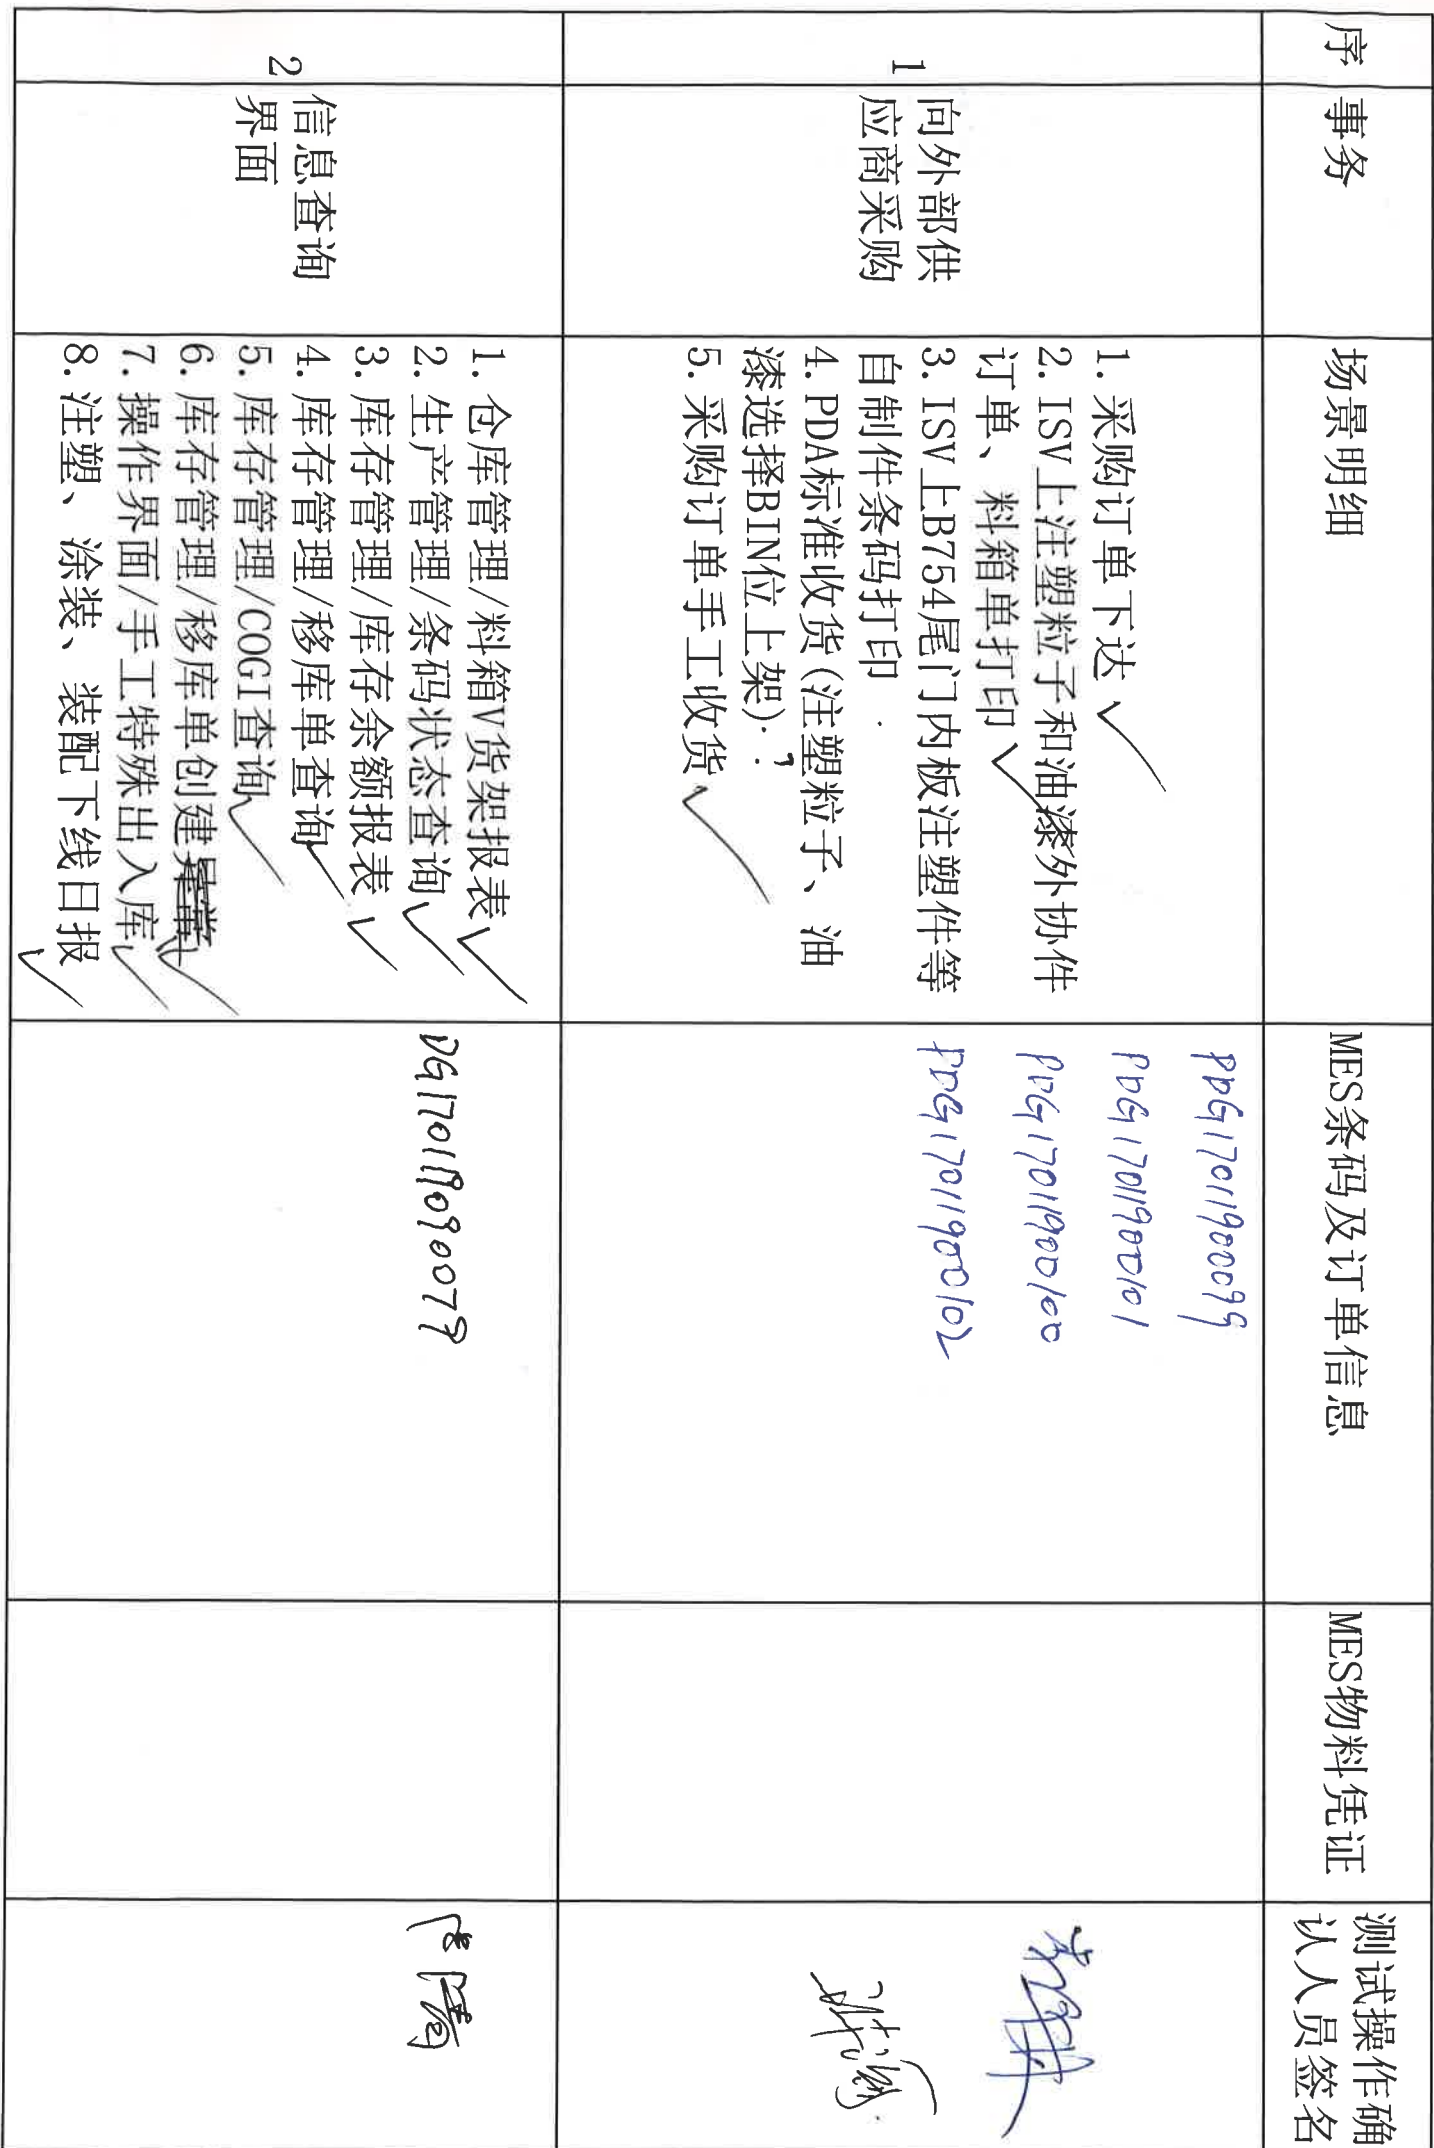 序
事务
场景明细
MES条码及订单信息
MES物料凭证
测试操作确
认人员签名
1
向外部供
应商采购
1. 采购订单下达 ✓
2. ISV上注塑粒子和油漆外协件
订单、料箱单打印 ✓
3. ISV上B754尾门内板注塑件等
自制件条码打印
4. PDA标准收货(注塑粒子、油
漆选择BIN位上架);
5. 采购订单手工收货 ✓
PDG170119000099
PDG170119000101
PDG170119000100
PDG170119000102
2
信息查询
界面
1. 仓库管理/料箱V货架报表 ✓
2. 生产管理/条码状态查询 ✓
3. 库存管理/库存余额报表 ✓
4. 库存管理/移库单查询 ✓
5. 库存管理/COGI查询 ✓
6. 库存管理/移库单创建 ✓
7. 操作界面/手工特殊出入库 ✓
8. 注塑、涂装、装配下线日报 ✓
DG170119090079